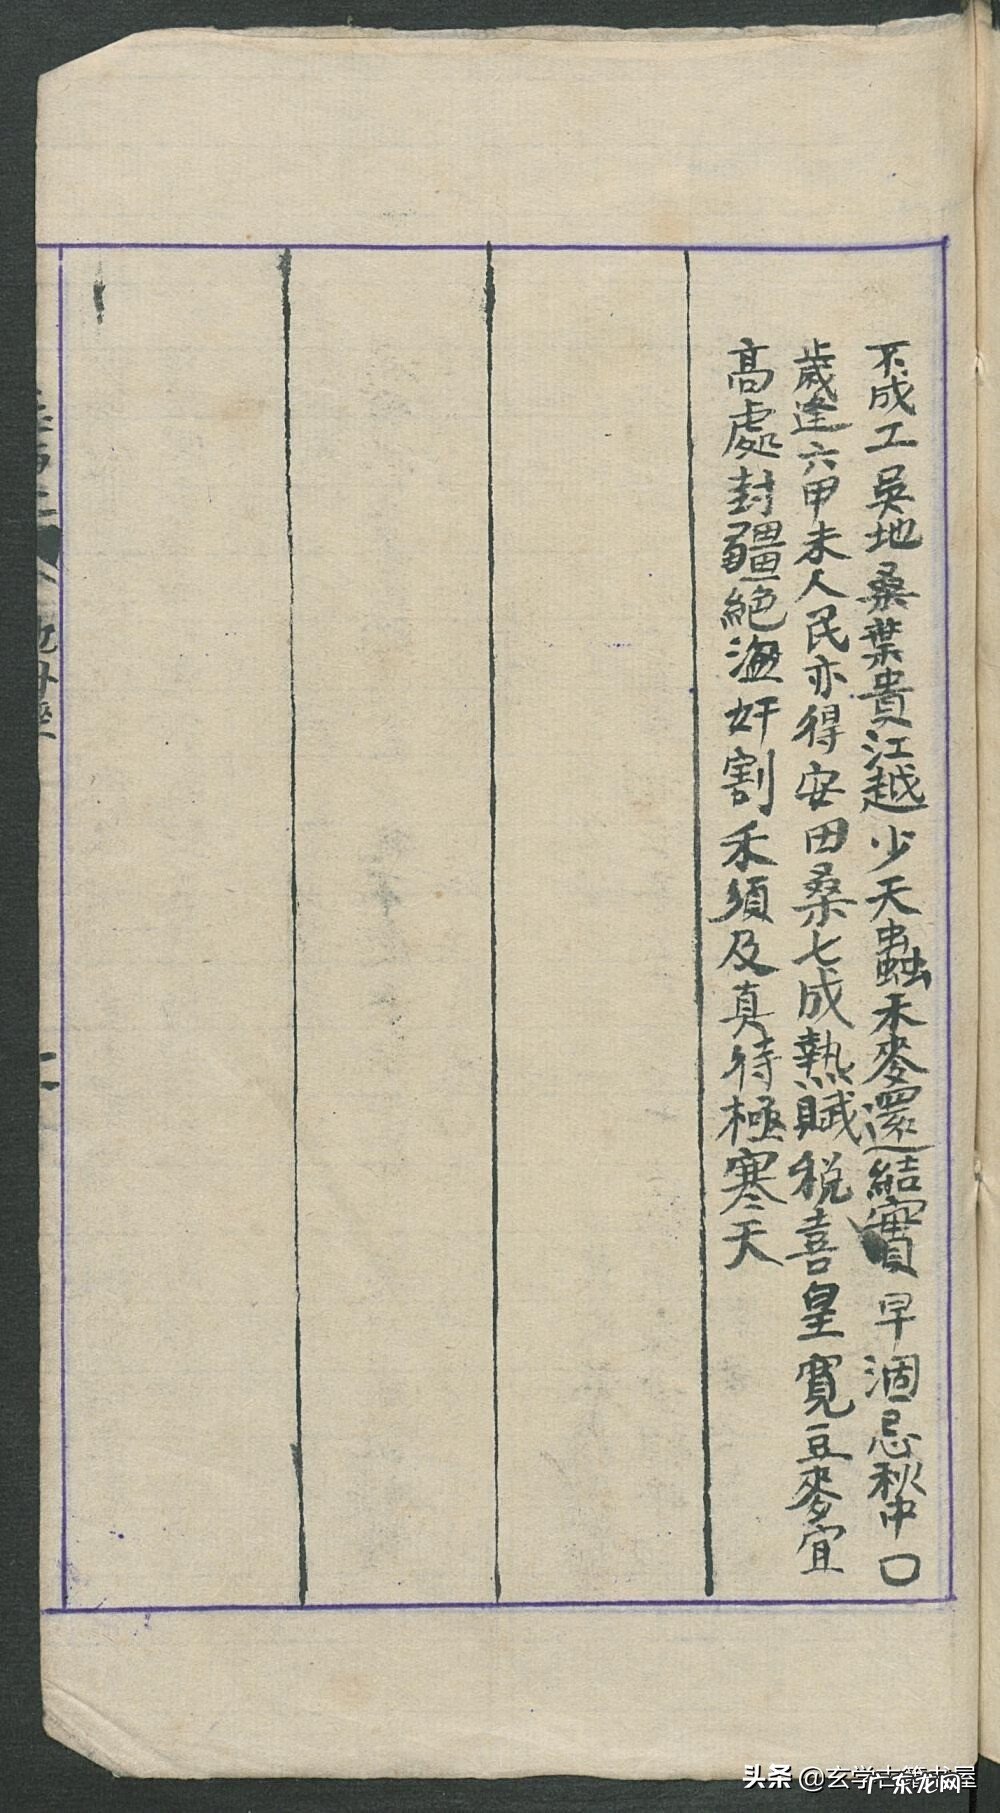 不成工吳地桑葉貴江越少天蟲禾麥還結實旱涸忌秋中口
歲逢六甲未人民亦得安田桑七成熟賦稅喜皇寬豆麥宜
高處封疆絕盜奸割禾須及真待極寒天
头条@玄学古籍书屋
广东龙网